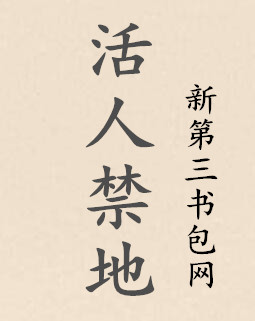 活人禁地
新第三书包网